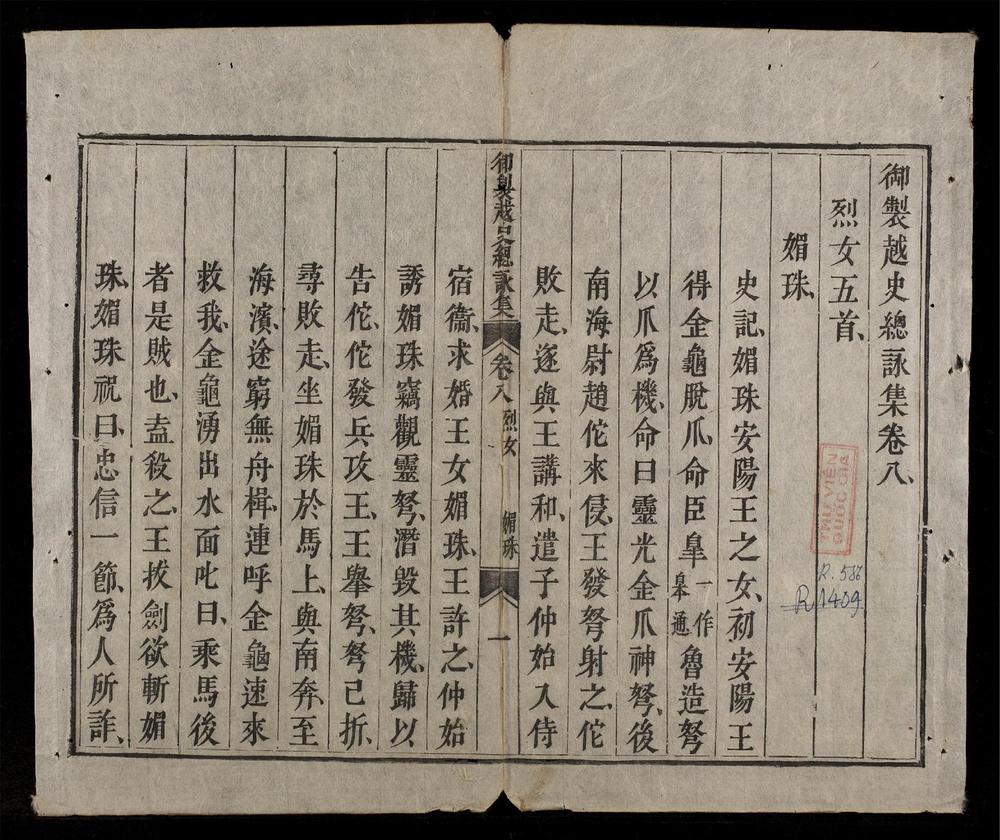 御製越史總詠集卷八、
烈女五首、
媚珠、
史記、媚珠安陽王之女、初安陽王
得金龜脫爪、命臣臯一作臯通魯造弩
以爪爲機、命曰靈光金爪神弩、後
南海尉趙佗來侵、王發弩射之、佗
敗走、遂與王講和、遣子仲始入侍
御製越史總詠集 卷八 烈女 媚珠 一
宿衞、求婚王女媚珠、王許之、仲始
誘媚珠竊觀靈弩、潛毀其機、歸以
告佗、佗發兵攻王、王舉弩、弩已折、
尋敗走、坐媚珠於馬上、與南奔、至
海濱、途窮無舟楫、連呼金龜速來
救我、金龜湧出水面叱曰、乘馬後
者是賊也、盍殺之、王拔劍欲斬媚
珠、媚珠祝曰、忠信一節、爲人所詐、
THƯ VIỆN
QUỐC GIA
R. 586
R1409